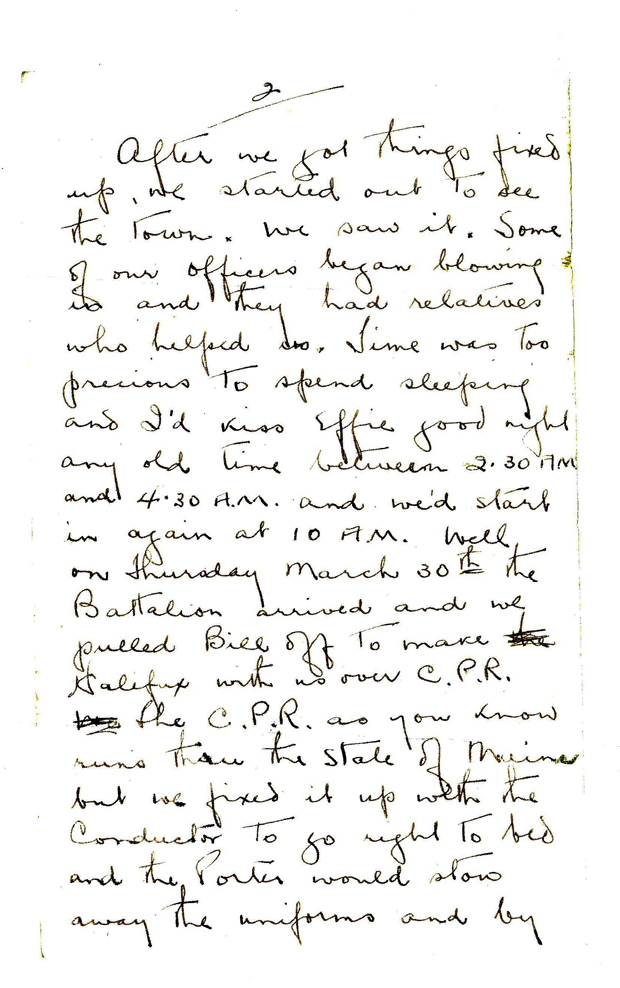 2
After we got things fixed
up, we started out to see
the Town. We saw it. Some
of our officers began blowing
in and they had relatives
who helped us. Time was too
precious to spend sleeping
and I'd kiss Effie good night
any old time between 2.30 AM
and 4.30 A.M. and we'd start
in again at 10 A.M. Well
on Thursday March 30th the
Battalion arrived and we
pulled Bill off to make
Halifax with us over C.P.R.
The C.P.R. as you know
runs thru the State of Maine
but we fixed it up with the
Conductor to go right to bed
and the Porter would stow
away the uniforms and by